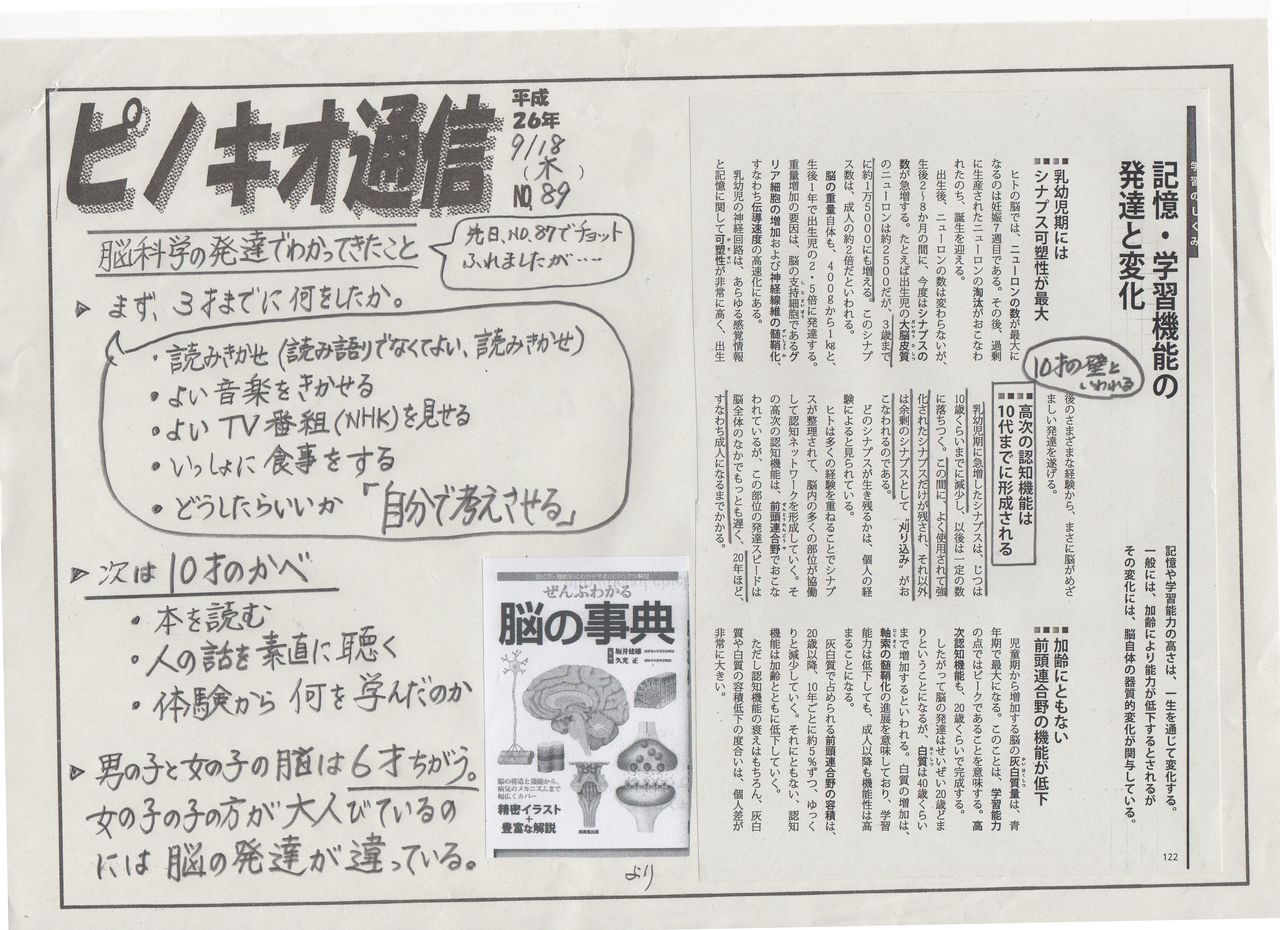 ピノキオ通信
平成
26年
9/18
(木)
NO.89
脳科学の発達でわかってきたこと
先日、NO.87でチョット
ふれましたが‥‥
まず、3才までに何をしたか。
・読みきかせ(読み語りでなくてよい、読みきかせ)
・よい音楽をきかせる
・よいTV番組(NHK)を見せる
・いっしょに食事をする
・どうしたらいいか「自分で考えさせる」
次は10才のかべ
・本を読む
・人の話を素直に聴く
・体験から何を学んだのか
男の子と女の子の脳は6才ちがう。
女の子の子の方が大人びているの
には脳の発達が違っている。
ぜんぶわかる
脳の事典
坂井建雄
久光正
脳の構造と機能から、
病気のメカニズムまで
幅広くカバー
精密イラスト
+
豊富な解説
成美堂出版
より
学習のしくみ
記憶・学習機能の
発達と変化
記憶や学習能力の高さは、一生を通じて変化する。
一般には、加齢により能力が低下するとされるが
その変化には、脳自体の器質的変化が関与している。
乳幼児期には
シナプス可塑性が最大
ヒトの脳では、ニューロンの数が最大に
なるのは妊娠7週目である。その後、過剰
に生産されたニューロンの淘汰がおこなわ
れたのち、誕生を迎える。
出生後、ニューロンの数は変わらないが、
生後2〜8か月の間に、今度はシナプスの
数が急増する。たとえば出生児の大脳皮質
のニューロンは約2500だが、3歳まで
に約1万5000にも増える。このシナプ
ス数は、成人の約2倍だといわれる。
脳の重量自体も、400gから1kgと、
生後1年で出生児の2・5倍に発達する。
重量増加の要因は、脳の支持細胞であるグ
リア細胞の増加および神経線維の髄鞘化、
すなわち伝導速度の高速化にある。
乳幼児の神経回路は、あらゆる感覚情報
と記憶に関して可塑性が非常に高く、出生
後のさまざまな経験から、まさに脳がめざ
ましい発達を遂げる。
10才の壁と
いわれる
高次の認知機能は
10代までに形成される
乳幼児期に急増したシナプスは、じつは
10歳くらいまでに減少し、以後は一定の数
に落ちつく。この間に、よく使用されて強
化されたシナプスだけが残され、それ以外
は余剰のシナプスとして“刈り込み”がお
こなわれるのである。
どのシナプスが生き残るかは、個人の経
験によると見られている。
ヒトは多くの経験を重ねることでシナプ
スが整理されて、脳内の多くの部位が協働
して認知ネットワークを形成していく。そ
の高次の認知機能は、前頭連合野でおこな
われているが、この部位の発達スピードは
脳全体のなかでもっとも遅く、20年ほど、
すなわち成人になるまでかかる。
加齢にともない
前頭連合野の機能が低下
児童期から増加する脳の灰白質量は、青
年期で最大になる。このことは、学習能力
の点ではピークであることを意味する。高
次認知機能も、20歳くらいで完成する。
したがって脳の発達はせいぜい20歳どま
りということになるが、白質は40歳くらい
まで増加するといわれる。白質の増加は、
軸索の髄鞘化の進展を意味しており、学習
能力は低下しても、成人以降も機能性は高
まることになる。
灰白質で占められる前頭連合野の容積は、
20歳以降、10年ごとに約5%ずつ、ゆっく
りと減少していく。それにともない、認知
機能は加齢とともに低下していく。
ただし認知機能の衰えはもちろん、灰白
質や白質の容積低下の度合いは、個人差が
非常に大きい。
122